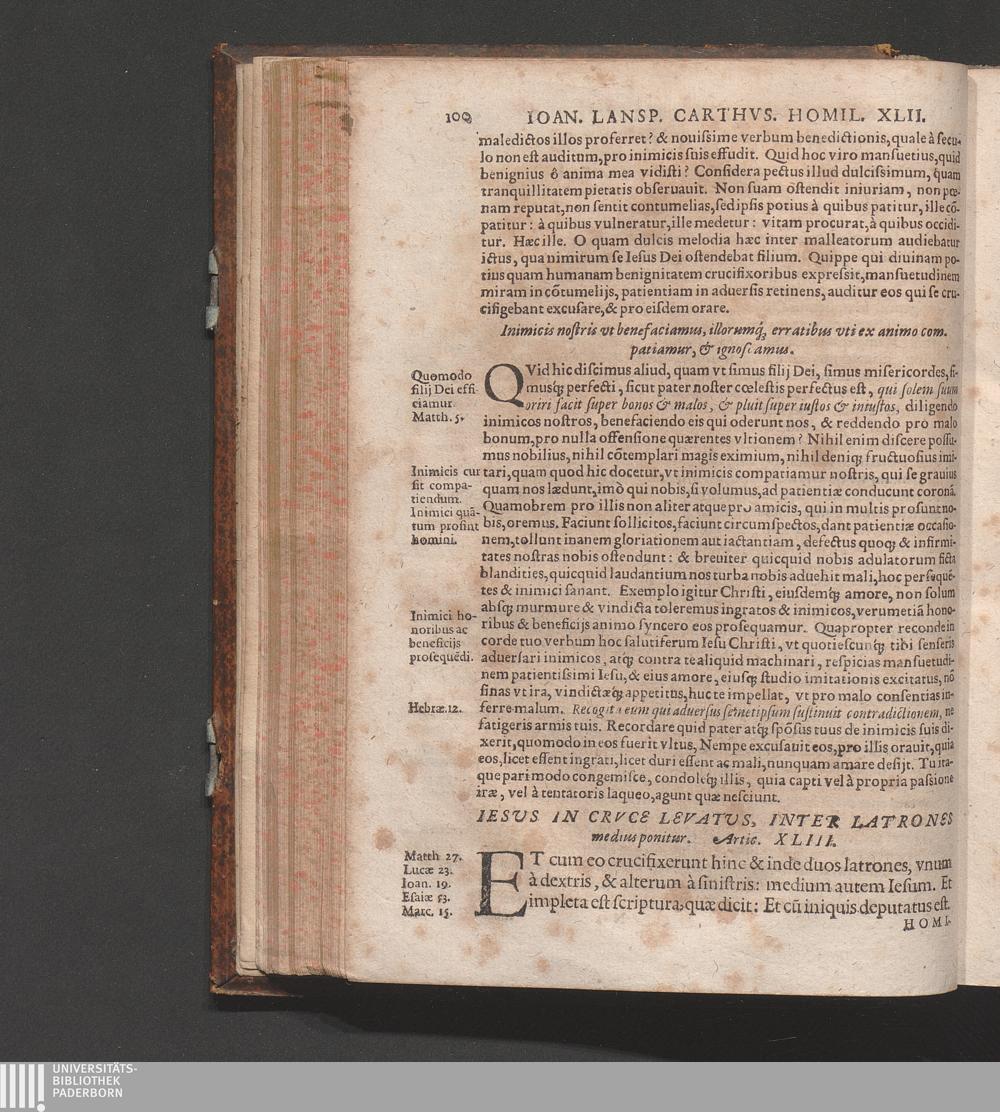 100 IOAN. LANSP. CARTHVS. HOMIL. XLII.
maledictos illos proferret? & nouiſsime verbum benedictionis, quale à ſecu-
lo non eſt auditum, pro inimicis ſuis effudit. Quid hoc viro manſuetius, quid
benignius ô anima mea vidiſti? Conſidera pectus illud dulciſsimum, quam
tranquillitatem pietatis obſeruauit. Non ſuam oſtendit iniuriam, non pœ-
nam reputat, non ſentit contumelias, ſed ipſis potius à quibus patitur, ille cõ-
patitur: à quibus vulneratur, ille medetur: vitam procurat, à quibus occidi-
tur. Hæc ille. O quam dulcis melodia hæc inter malleatorum audiebatur
ictus, qua nimirum ſe Ieſus Dei oſtendebat filium. Quippe qui diuinam po-
tius quam humanam benignitatem crucifixoribus expreſsit, manſuetudinem
miram in cõtumelijs, patientiam in aduerſis retinens, auditur eos qui ſe cru-
cifigebant excuſare, & pro eiſdem orare.
Inimicis noſtris vt benefaciamus, illorumq́; erratibus vti ex animo com-
patiamur, & ignoſcamus.
Quomodo
filij Dei effi-
ciamur.
Matth. 5.
QVid hic diſcimus aliud, quam vt ſimus filij Dei, ſimus miſericordes, ſi-
musq́; perfecti, ſicut pater noſter cœleſtis perfectus eſt, qui ſolem ſuum
oriri facit ſuper bonos & malos, & pluit ſuper iuſtos & iniuſtos, diligendo
inimicos noſtros, benefaciendo eis qui oderunt nos, & reddendo pro malo
bonum, pro nulla offenſione quærentes vltionem? Nihil enim diſcere poſſu-
mus nobilius, nihil cõtemplari magis eximium, nihil deniq; fructuoſius imi-
Inimicis cur
ſit compa-
tiendum.
Inimici quã-
tum profint
homini.
tari, quam quod hic docetur, vt inimicis compatiamur noſtris, qui ſe grauius
quam nos lædunt, imò qui nobis, ſi volumus, ad patientiæ conducunt coronã.
Quamobrem pro illis non aliter atque pro amicis, qui in multis proſunt no-
bis, oremus. Faciunt ſollicitos, faciunt circumſpectos, dant patientiæ occaſio-
nem, tollunt inanem gloriationem aut iactantiam, defectus quoq; & infirmi-
tates noſtras nobis oſtendunt: & breuiter quicquid nobis adulatorum ficta
blandities, quicquid laudantium nos turba nobis aduehit mali, hoc perſequẽ-
tes & inimici ſanant. Exemplo igitur Chriſti, eiuſdemq́; amore, non ſolum
abſq; murmure & vindicta toleremus ingratos & inimicos, verumetiã hono-
Inimici ho-
noribus ac
beneficijs
proſequẽdi.
ribus & beneficijs animo ſyncero eos proſequamur. Quapropter reconde in
corde tuo verbum hoc ſalutiferum Ieſu Chriſti, vt quotieſcunq; tibi ſenſeris
aduerſari inimicos, atq; contra te aliquid machinari, reſpicias manſuetudi-
nem patientiſsimi Ieſu, & eius amore, eiuſq; ſtudio imitationis excitatus, nõ
ſinas vt ira, vindictæq; appetitus, huc te impellat, vt pro malo conſentias in-
Hebræ. 12.
ferre malum. Recogita eum qui aduerſus ſemetipſum ſuſtinuit contradictionem, ne
fatigeris armis tuis. Recordare quid pater atq; ſpõſus tuus de inimicis ſuis di-
xerit, quomodo in eos fuerit vltus, Nempe excuſauit eos, pro illis orauit, quia
eos, licet eſſent ingrati, licet duri eſſent ac mali, nunquam amare deſijt. Tu ita-
que pari modo congemiſce, condoleq́; illis, quia capti vel à propria paſsione
iræ, vel à tentatoris laqueo, agunt quæ neſciunt.
IESVS IN CRVCE LEVATVS, INTER LATRONES
medius ponitur. Artic. XLIII.
Matth 27.
Lucæ 23.
Ioan. 19.
Eſaiæ 53.
Marc. 15.
ET cum eo crucifixerunt hinc & inde duos latrones, vnum
à dextris, & alterum à ſiniſtris: medium autem Ieſum. Et
impleta eſt ſcriptura, quæ dicit: Et cũ iniquis deputatus eſt.
HOMI-
UNIVERSITÄTS-
BIBLIOTHEK
PADERBORN